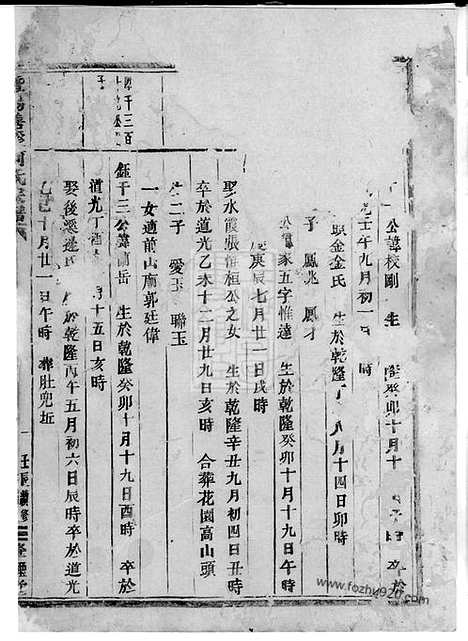 公諱校剛 生 隆癸卯十月十 卒於
壬午九月初一 時
娶金金氏 生於乾隆丁 八月十四日卯時
子 鳳兆 鳳才
公諱家五字惟達 生於乾隆癸卯十月十九日午時
庚辰七月廿一日戌時
娶水霞張 桓公之女 生於乾隆辛丑九月初四日丑時
卒於道光乙未十二月廿九日亥時 合葬花園高山頭
生二子 愛玉 聯玉
一女適前山廟郭廷偉
鈺千三公諱 岳 生於乾隆癸卯十月十九日酉時 卒於
道光丁酉 十五日亥時
娶後 氏 生於乾隆丙午五月初六日辰時卒於道光
乙巳十月廿一日午時 葬肚兜坵
千三百
何氏宗譜
壬辰續修
www.fozhu920.com